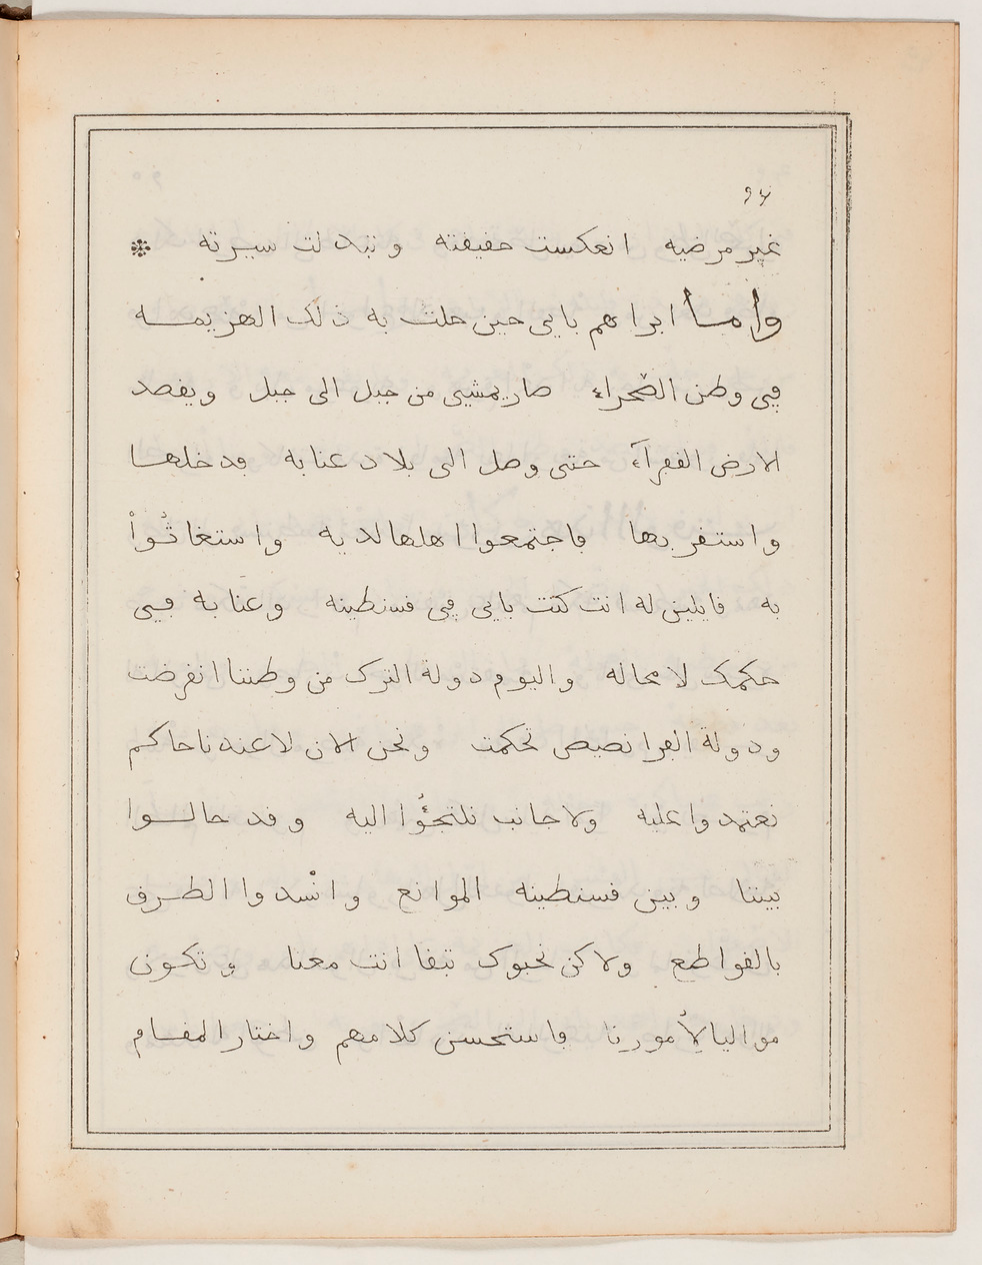 ٩٤
غير مرضيه انعكست حقيقته وتبدلت سيرته
واما ابراهم بايى حين حلت به ذلك الهزيمه
ڢى وطن الصحراء صار يمشيى من جبل الى جبل ويقصد
الارض القفرآء حتى وصل الى بلاد عنابه فدخلها
واستقر بها فاجتمعوا اهلها لديه واستغاثوا
به قايلين له انت كنت بايى ڢى قسنطينه وعنابه فيى
حكمك لا محاله واليوم دولة الترك من وطننا انقرضت
ودولة الفرانصيص تحكمت ونحن الان لا عندنا حاكم
نعتمدوا عليه ولا جانب نلتجؤا اليه وقد حالوا
بيننا وبين قسنطينه الموانع وانسدوا الطرق
بالقواطع ولاكن نحبوك تبقا انت معنا وتكون
مواليا لأمورنا فاستحسن كلامهم واختار المقام